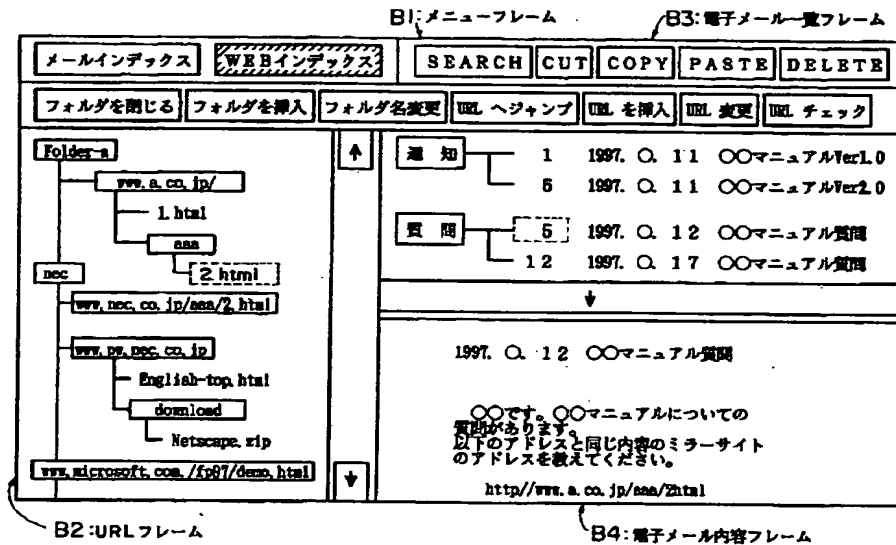 B1:メニューフレーム
B3:電子メール一覧フレーム
メールインデックス WEBインデックス SEARCH CUT COPY PASTE DELETE
フォルダを閉じる フォルダを挿入 フォルダ名変更 URL へジャンプ URL を挿入 URL 変更 URL チェック
Folder-a
www.a.co.jp/
1.html
aaa
2.html
nec
www.nec.co.jp/aaa/2.html
www.pw.nec.co.jp
English-top.html
download
Netscape.zip
www.microsoft.com./fp97/demo.html
通 知 1 1997. ○. 11 ○○マニュアルVer1.0
5 1997. ○. 11 ○○マニュアルVer2.0
質 問 5 1997. ○. 12 ○○マニュアル質問
12 1997. ○. 17 ○○マニュアル質問
1997. ○. 12 ○○マニュアル質問
○○です。○○マニュアルについての
質問があります。
以下のアドレスと同じ内容のミラーサイト
のアドレスを教えてください。
http//www.a.co.jp/aaa/2html
B2:URLフレーム
B4:電子メール内容フレーム